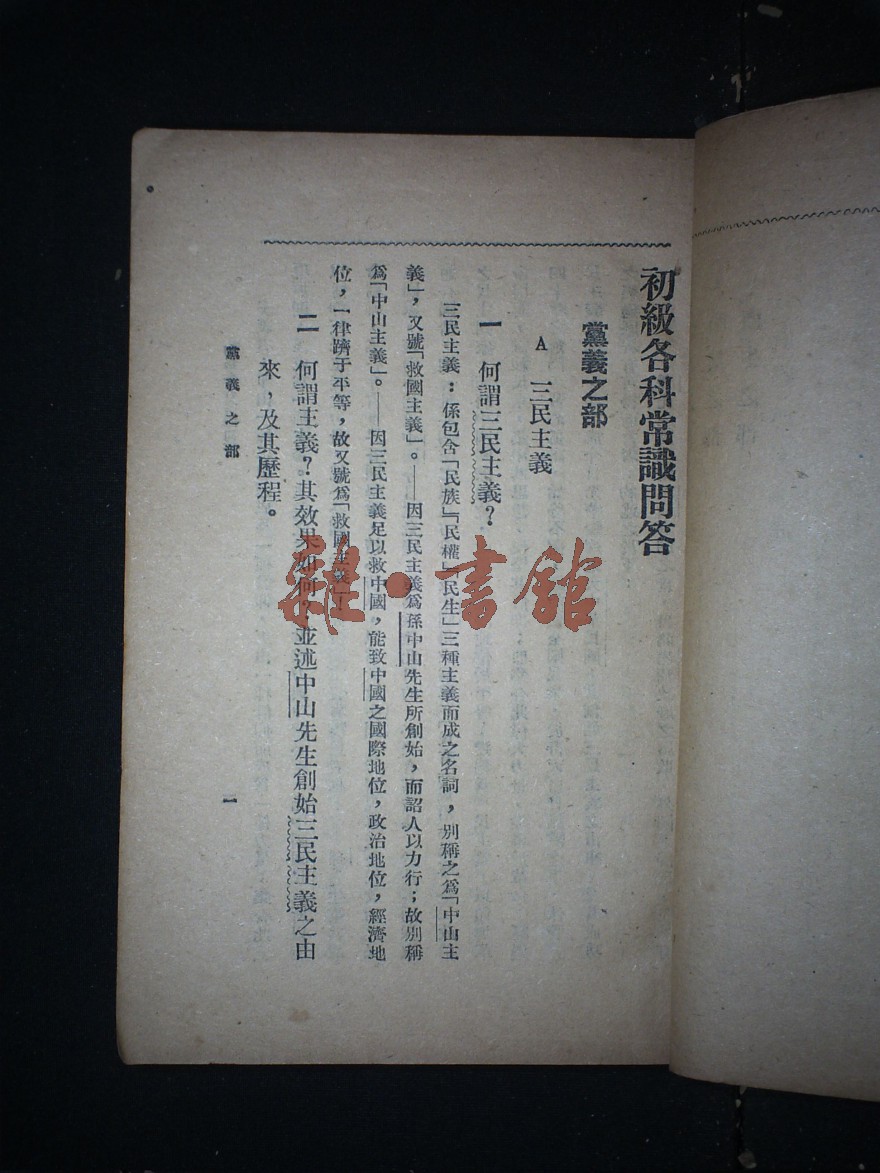 初級各科常識問答
黨義之部
A 三民主義
一 何謂三民主義？
三民主義：係包含「民族」「民權」「民生」三種主義而成之名詞，別稱之爲「中山主
義」，又號「救國主義」。——因三民主義爲孫中山先生所創始，而詔人以力行；故別稱
爲「中山主義」。——因三民主義足以救中國，能致中國之國際地位，政治地位，經濟地
位，一律躋于平等，故又號爲「救國主義」
二 何謂主義？其效果如何？並述中山先生創始三民主義之由
來，及其歷程。
黨義之部
一
雜·書館